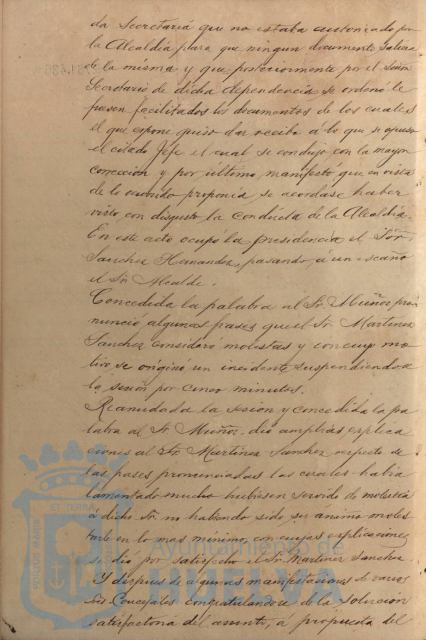 da Secretaria que no estaba autorizado por
la Alcaldia para que ningun documento saliera
de la misma y que posteriormente por el Señor
Secretario de dicha dependencia se ordenó le
fuesen facilitados los documentos de los cuales
el que expone quiso dar recibo a lo que se opuso
el citado Jefe el cual se condujo con la mayor
corrección y por ultimo, manifestó que en vista
de lo ocurrido proponia se acordase haber
visto con disgusto la conducta de la Alcaldia.
En este acto ocupó la presidencia el Señor
Sanchez Hernandez, pasando á un escaño
el Sr. Alcalde.
Concedida la palabra al Sr. Muñoz pro
nunció algunas frases que el Sr. Martinez
Sanchez consideró molestas y con cuyo mo
tivo se originó un incidente suspendiendose
la sesión por cinco minutos.
Reanudada la sesion y concedida la pa
labra al Sr. Muñoz, dió amplias explica
ciones al Sr. Martinez Sanchez respecto de
las frases pronunciadas las cuales habia
lamentado mucho hubiesen servido de molestia
á dicho Sr. no habiendo sido su ánimo moles
tarle en lo mas minimo, con cuyas explicaciones
se dió por satisfecho el Sr. Martinez Sanchez
Y despues de algunas manifestaciones de varios
Sres. Concejales congratulandose de la solución
satisfactoria del asunto, a propuesta del
Ayuntamiento de
HUELVA